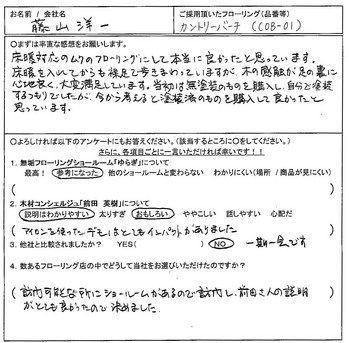 お名前／会社名
藤山洋一
ご採用頂いたフローリング(品番等)
カントリーバーチ (COB-01)
○まずは率直な感想をお願いします。
床暖対応のムクのフローリングにして本当に良かったと思っています。
床暖を入れてからも裸足で歩きまわっていますが、木の感触が足の裏に
心地良く、大変満足しています。当初は無塗装のものを購入し、自分で塗装
するつもりでしたが、今から考えると塗装済のものを購入して良かったと
思っています。
○よろしければ以下のアンケートにもお答えください。(該当するところに○をしてください。)
さらに、各項目ごとに一言いただければ幸いです！！
1. 無垢フローリングショールーム「ゆらぎ」について
最高！ 参考になった 他のショールームと変わらない わかりにくい(場所 / 商品が見にくい)
( )
2. 木材コンシェルジュ「前田 英樹」について
説明はわかりやすい 太りすぎ おもしろい ややこしい 話しやすい 心配だ
( アイロンを使ったデモはとてもインパクトがありました )
3. 他社と比較されましたか？ YES( ) NO 一期一会です
4. 数あるフローリング店の中でどうして当社をお選びいただけたのですか？
( 訪問可能な所にショールームがあるので訪問し、前田さんの説明
がとても良かったので決めました )